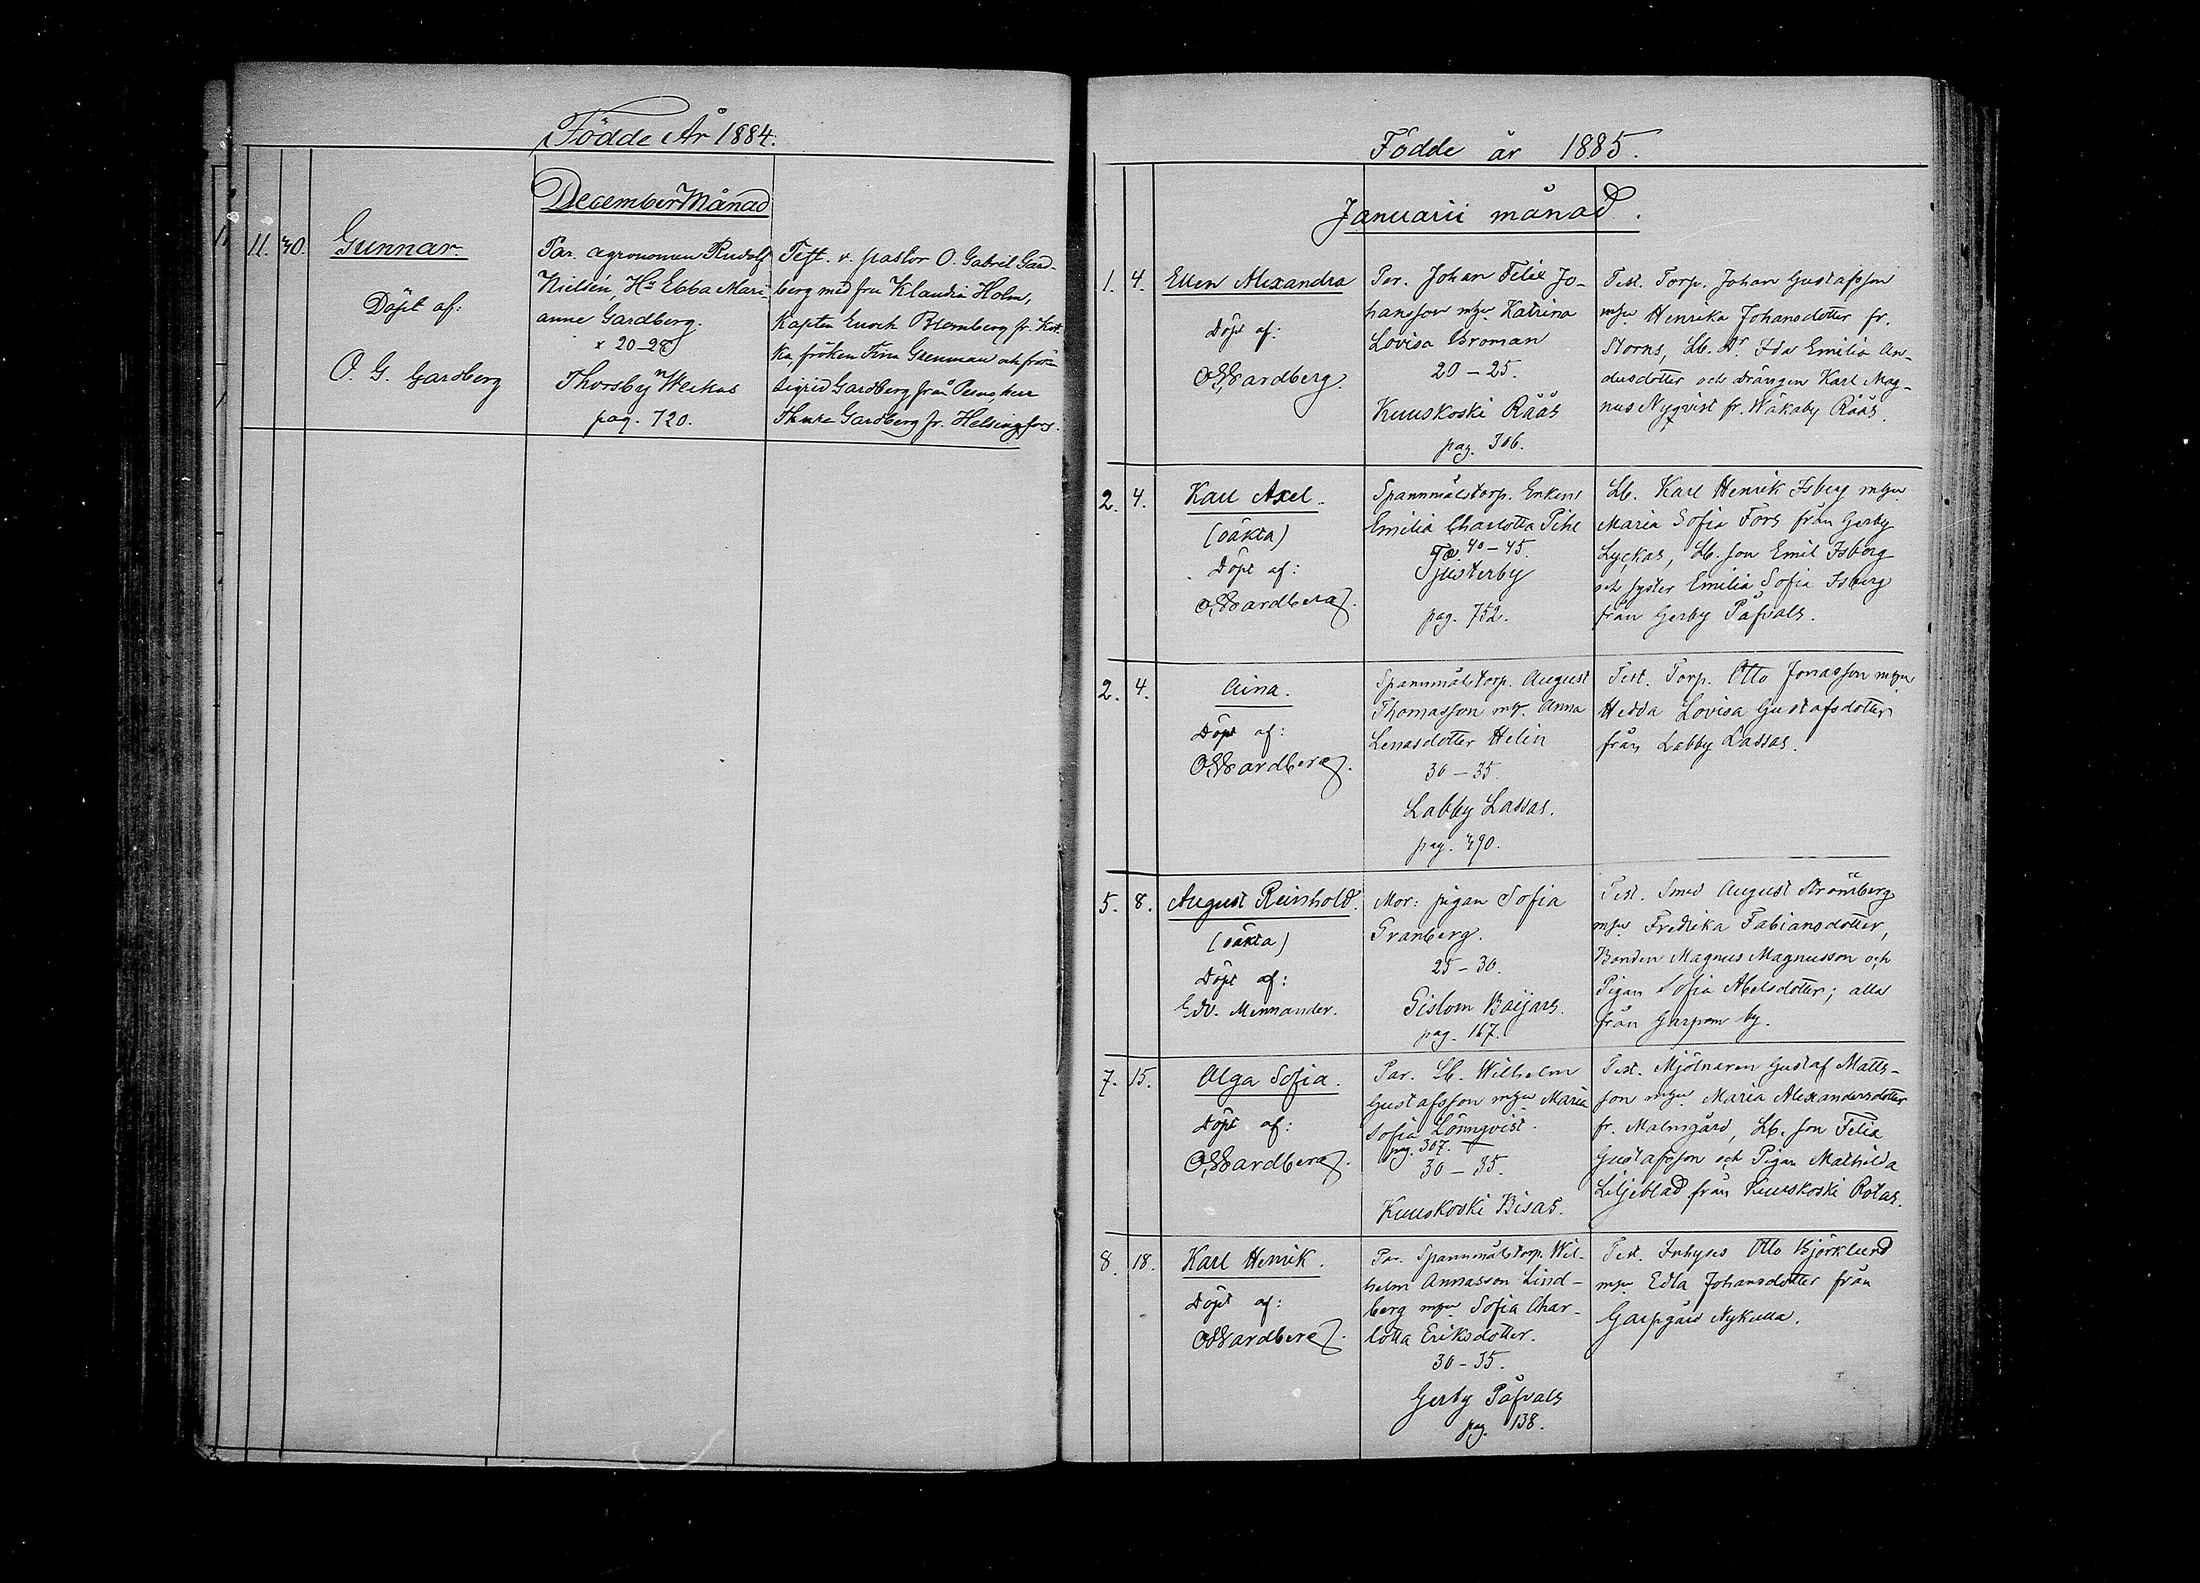 Födde År 1884.
December Månad
11. 30. Gunnar.
Döpt af:
O. G. Gardberg
Par. agronomen Rudolf
Nielsén, Hu Ebba Mari-
anne Gardberg.
x 20-25
Thorsby Weckas
pag. 720.
Test. v. pastor O. Gabriel Gard-
berg med fru Klaudia Holm,
Kapten Enoch Blomberg fr. Kot-
ka, fröken Fina Grenman och frök.
Sigrid Gardberg från Perno, herr
Thure Gardberg fr. Helsingfors.
Födde år 1885.
Januarii månad.
1. 4. Ellen Alexandra
Döpt af:
OGGardberg.
Par. Johan Felix Jo-
hansson m hu Katrina
Lovisa Broman
20-25.
Kuuskoski Råås
pag. 306.
Test. Torp. Johan Gustafsson
m hu Henrika Johansdotter fr.
Storns, Lb. Dr. Ida Emilia An-
dersdotter och drängen Karl Mag-
nus Nyqvist fr. Wåkaby Råås.
2. 4. Karl Axel.
(oäkta)
Döpt af:
OGGardberg.
Spannmålstorp. Enkan
Emilia Charlotta Pihl
40-45.
Tjusterby
pag. 752.
Lb. Karl Henrik Isberg m hu
Maria Sofia Fors från Gerby
Lyckas, Lb. son Emil Isberg
och syster Emilia Sofia Isberg
från Gerby Påfvals.
2. 4. Aina.
Döpt af:
OGGardberg.
Spannmålstorp. August
Thomasson m hu Anna
Lenasdotter Helin
30-35.
Labby Lassas.
pag. 490.
Test. Torp. Otto Jonasson m hu
Hedda Lovisa Gustafsdotter
från Labby Lassas.
5. 8. August Reinhold.
(oäkta)
Döpt af:
Edv. Mennander.
Mor: pigan Sofia
Granberg.
25-30.
Gislom Baijars.
pag. 167.
Test. Smed August Strömberg
m hu Fredrika Fabiansdotter,
Bonden Magnus Magnusson och
Pigan Sofia Abelsdotter; alla
från Garpom by.
7. 15. Olga Sofia.
Döpt af:
OGGardberg.
Par. Lb. Wilhelm
Gustafsson m hu Maria
Sofia Lönnqvist.
pag. 307.
30-35.
Kuuskoski Bisas.
Test. Mjölnaren Gustaf Matts-
son m hu Maria Alexandersdotter
fr. Malmgård, Lb. son Felix
Gustafsson och Pigan Mathilda
Liljeblad från Kuuskoski Rotas.
8. 18. Karl Henrik.
Döpt af:
OGGardberg.
Par. Spannmålstorp. Wil-
helm Annasson Lind-
berg m hu Sofia Char-
lotta Eriksdotter.
30-35.
Gerby Påfvals
pag. 138.
Test. Inhyses Otto Björklund
m hu Edla Johansdotter från
Garpgård Nykulla.